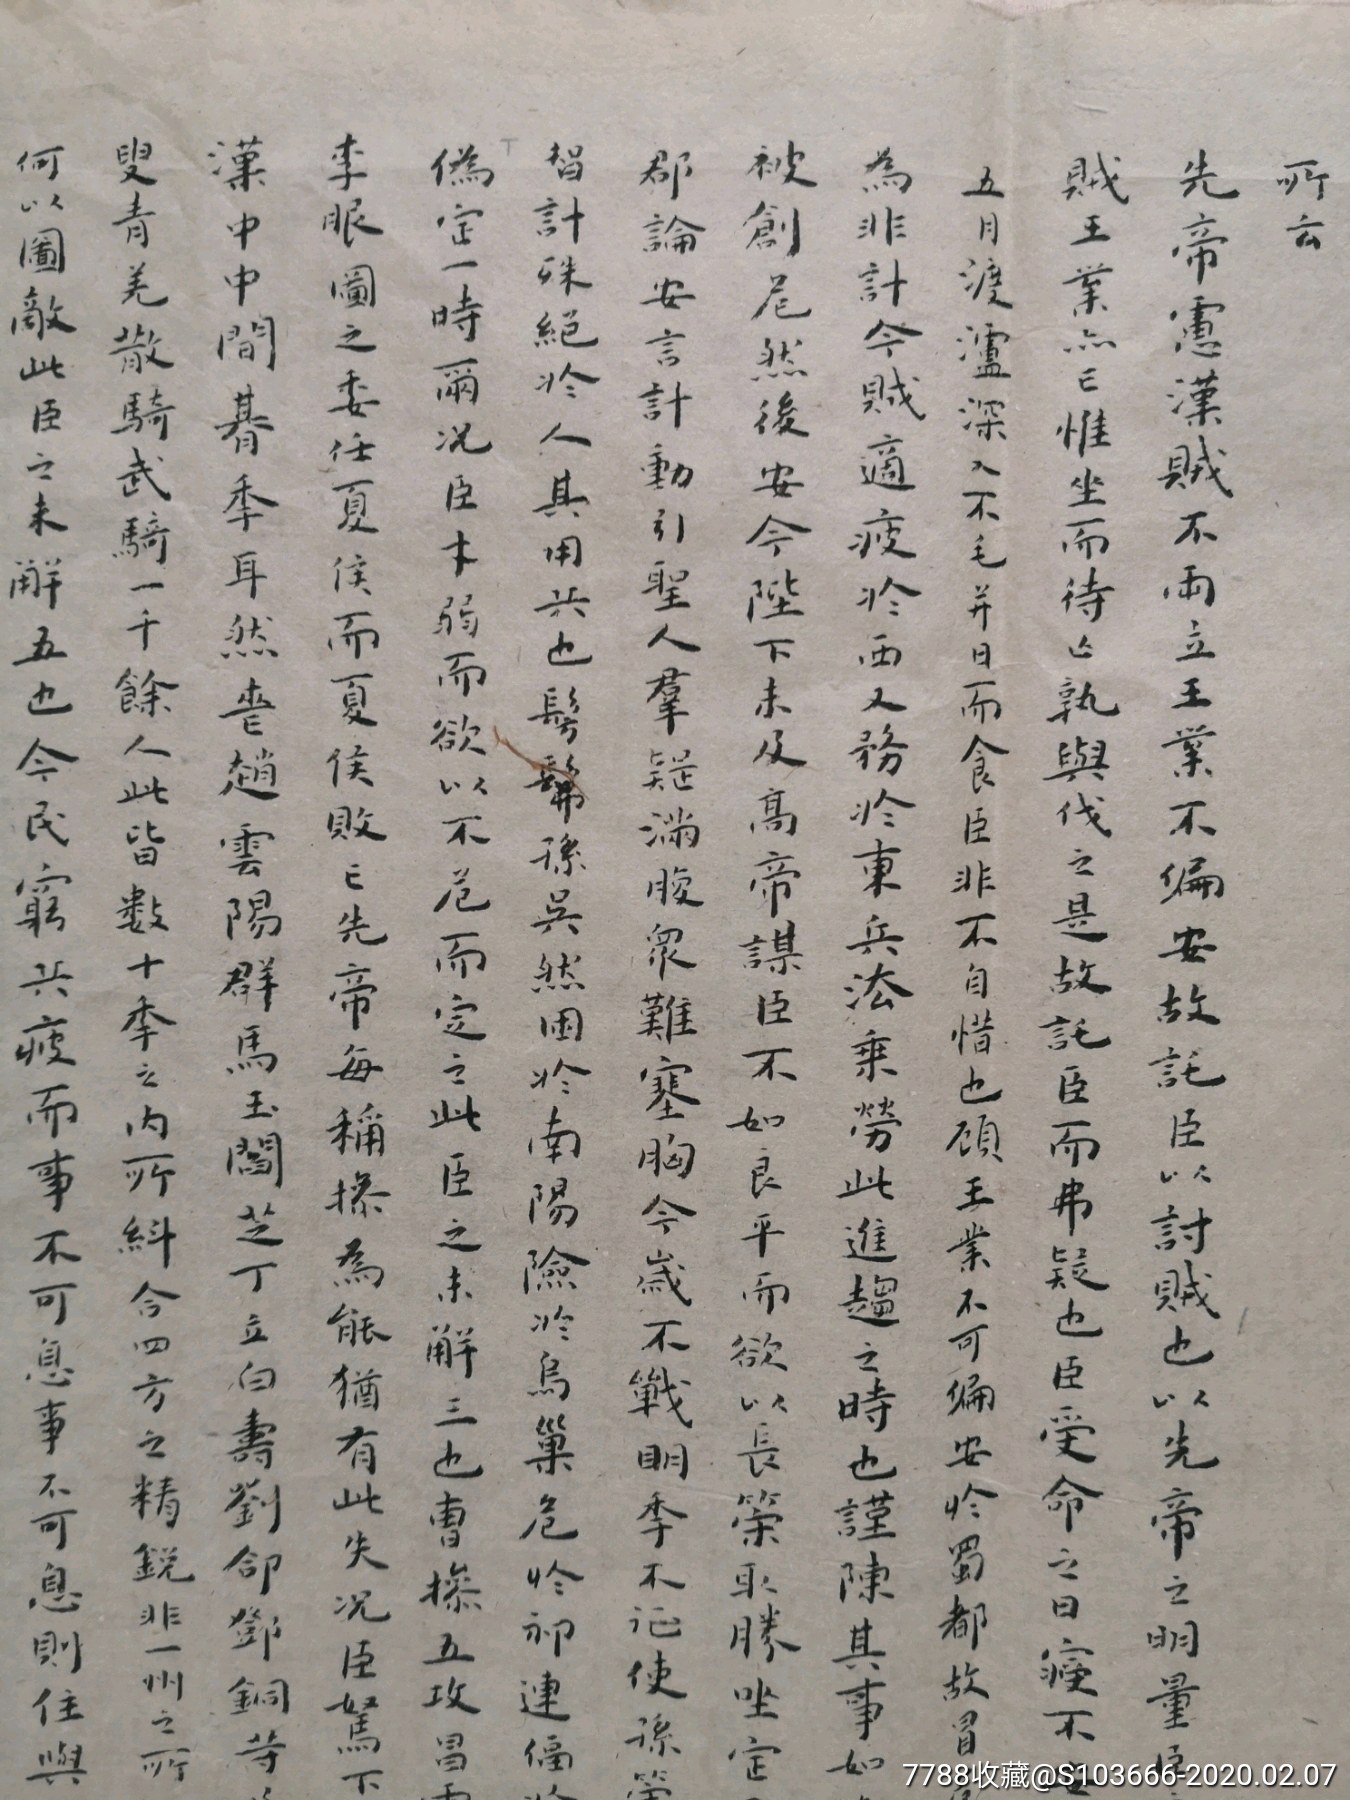 所云
先帝慮漢賊不兩立王業不偏安故託臣以討賊也以先帝之明量臣
賊王業亦亡惟坐而待亡孰與伐之是故託臣而弗疑也臣受命之日寢不安
五月渡瀘深入不毛并日而食臣非不自惜也顧王業不可偏安於蜀都故冒
為非計今賊適疲於西又務於東兵法乘勞此進趨之時也謹陳其事如
被創危然後安今陛下未及高帝謀臣不如良平而欲以長策取勝坐定
郡論安言計動引聖人羣疑滿腹衆難塞胸今歲不戰明季不征使孫策
智計殊絕於人其用兵也髣髴孫吳然困於南陽險於烏巢危於祁連偪於
偽定一時爾况臣才弱而欲以不危而定之此臣之未解三也曹操五攻昌
李服圖之委任夏侯而夏侯敗亡先帝每稱操為能猶有此失况臣駑下
漢中中間朞季耳然喪趙雲陽群馬玉閻芝丁立白壽劉郃鄧銅等
叟青羌散騎武騎一千餘人此皆數十季之内所糾合四方之精銳非一州之所
何以圖敵此臣之未解五也今民窮兵疲而事不可息事不可息則住與
7788收藏@S103666-2020.02.07